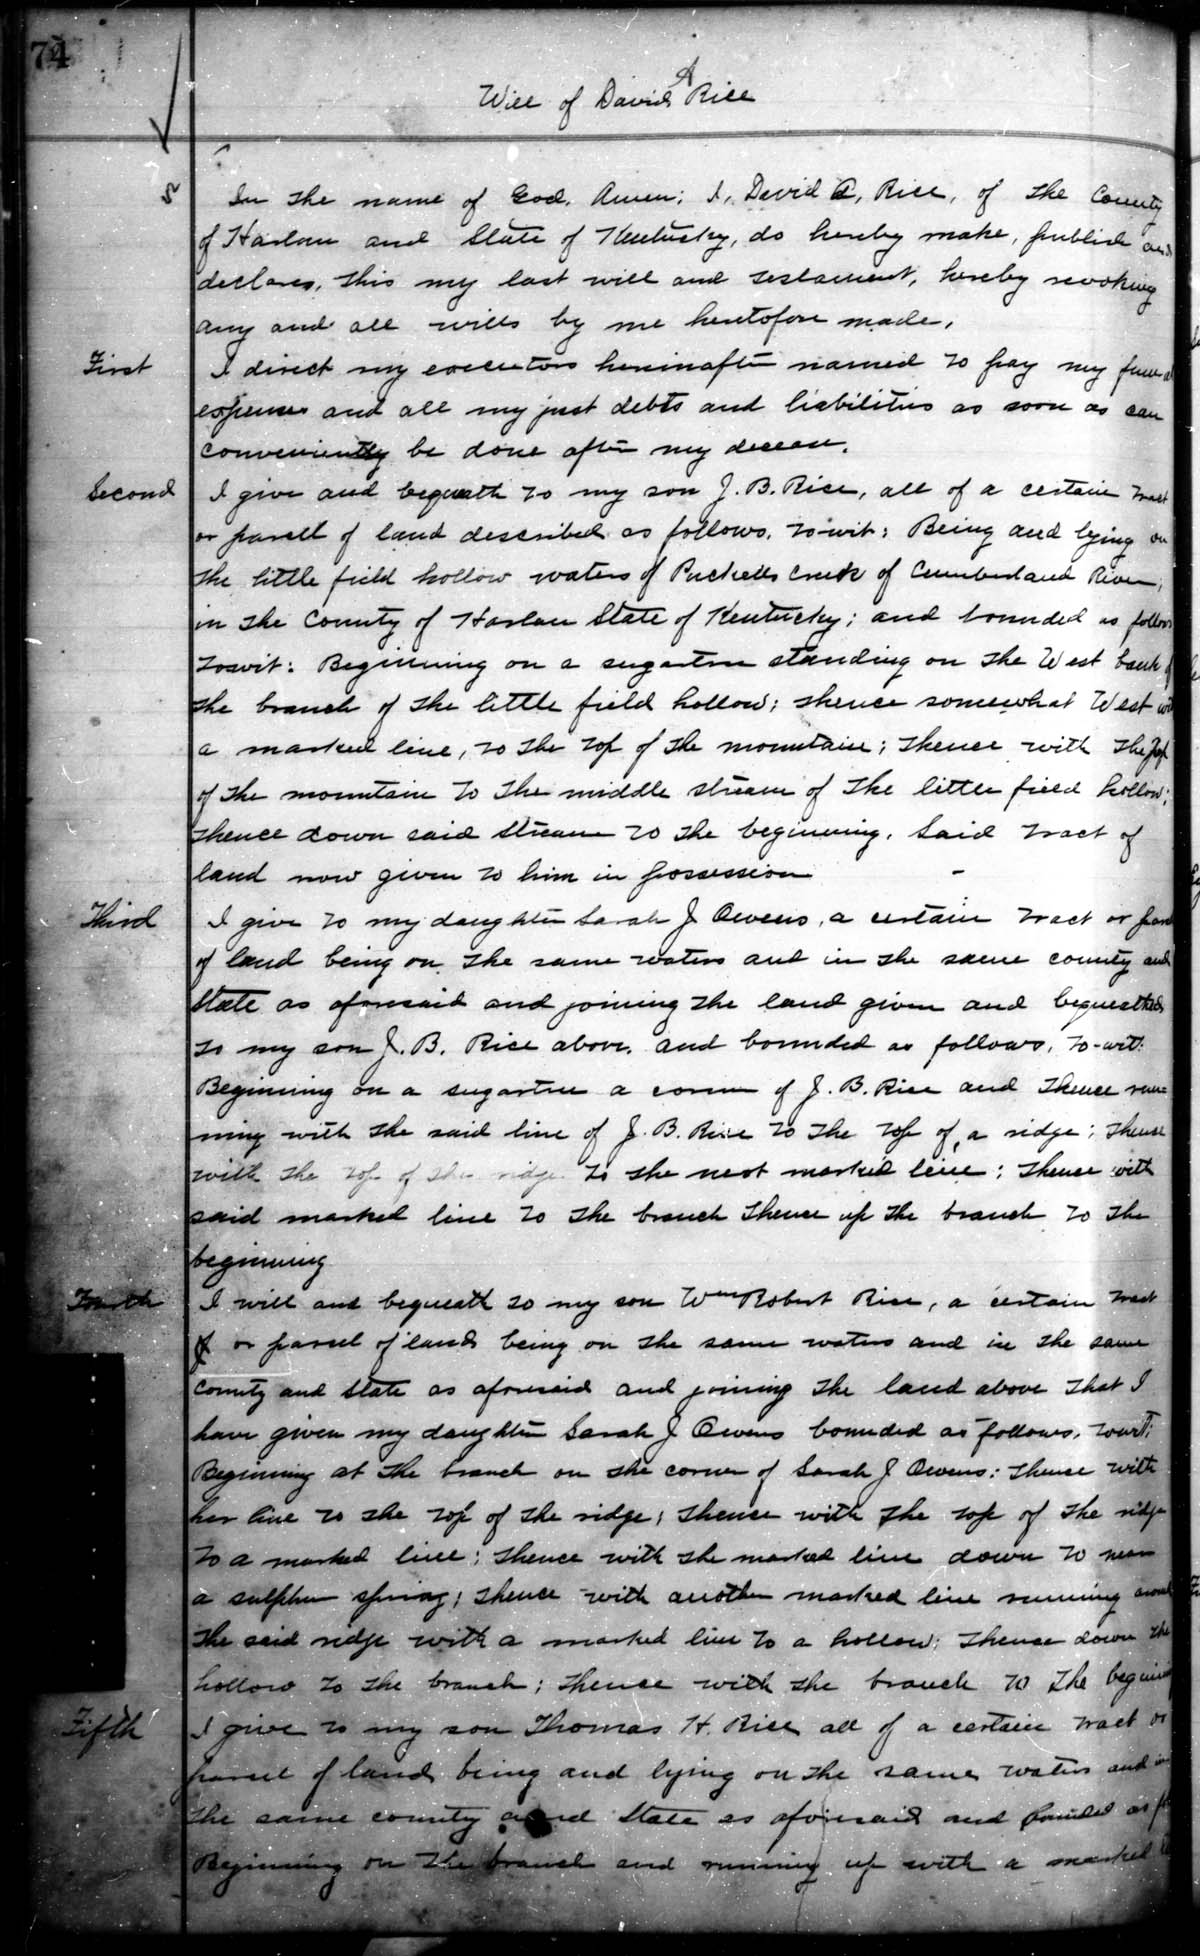 74
Will of David A Rice
In the name of God, Amen; I, David A, Rice, of the County
of Harlan and State of Kentucky, do hereby make, publish and
declare, this my last will and testament, hereby revoking
any and all wills by me heretofore made,
First I direct my executors hereinafter named to pay my funeral
expenses and all my just debts and liabilities as soon as can
conveniently be done after my decease.
Second I give and bequeath to my son J. B. Rice, all of a certain tract
or parcell of land described as follows, to-wit: Being and lying on
the little field hollow waters of Pucketts Creek of Cumberland River,
in the County of Harlan State of Kentucky; and bounded as follows
towit: Beginning on a sugartree standing on the West bank of
the branch of the little field hollow; thence somewhat West with
a marked line, to the top of the mountain; thence with the top
of the mountain to the middle stream of the little field hollow;
thence down said stream to the beginning. Said tract of
land now given to him in possession
Third I give to my daughter Sarah J Owens, a certain tract or
of land being on the same waters and in the same county and
State as aforesaid and joining the land given and bequeathed
to my son J. B. Rice above, and bounded as follows, to-wit:
Beginning on a sugartree a corner of J. B. Rice and thence run-
ning with the said line of J. B. Rice to the top of a ridge; thence
with the top of the ridge to the next marked line; thence with
said marked line to the branch thence up the branch to the
beginning
Fourth I will and bequeath to my son Wm Robert Rice, a certain tract
or parcel of land being on the same waters and in the same
County and State as aforesaid and joining the land above that I
have given my daughter Sarah J Owens bounded as follows, towit:
Beginning at the branch on the corner of Sarah J Owens; thence with
her line to the top of the ridge; thence with the top of the ridge
to a marked line; thence with the marked line down to near
a sulphur spring; thence with another marked line running around
the said ridge with a marked line to a hollow; thence down the
hollow to the branch; thence with the branch to the begining
Fifth I give to my son Thomas H. Rice all of a certain tract or
parcel of land being and lying on the same waters and in
the same county and State as aforesaid and bounded as
Beginning on the branch and running up with a marked